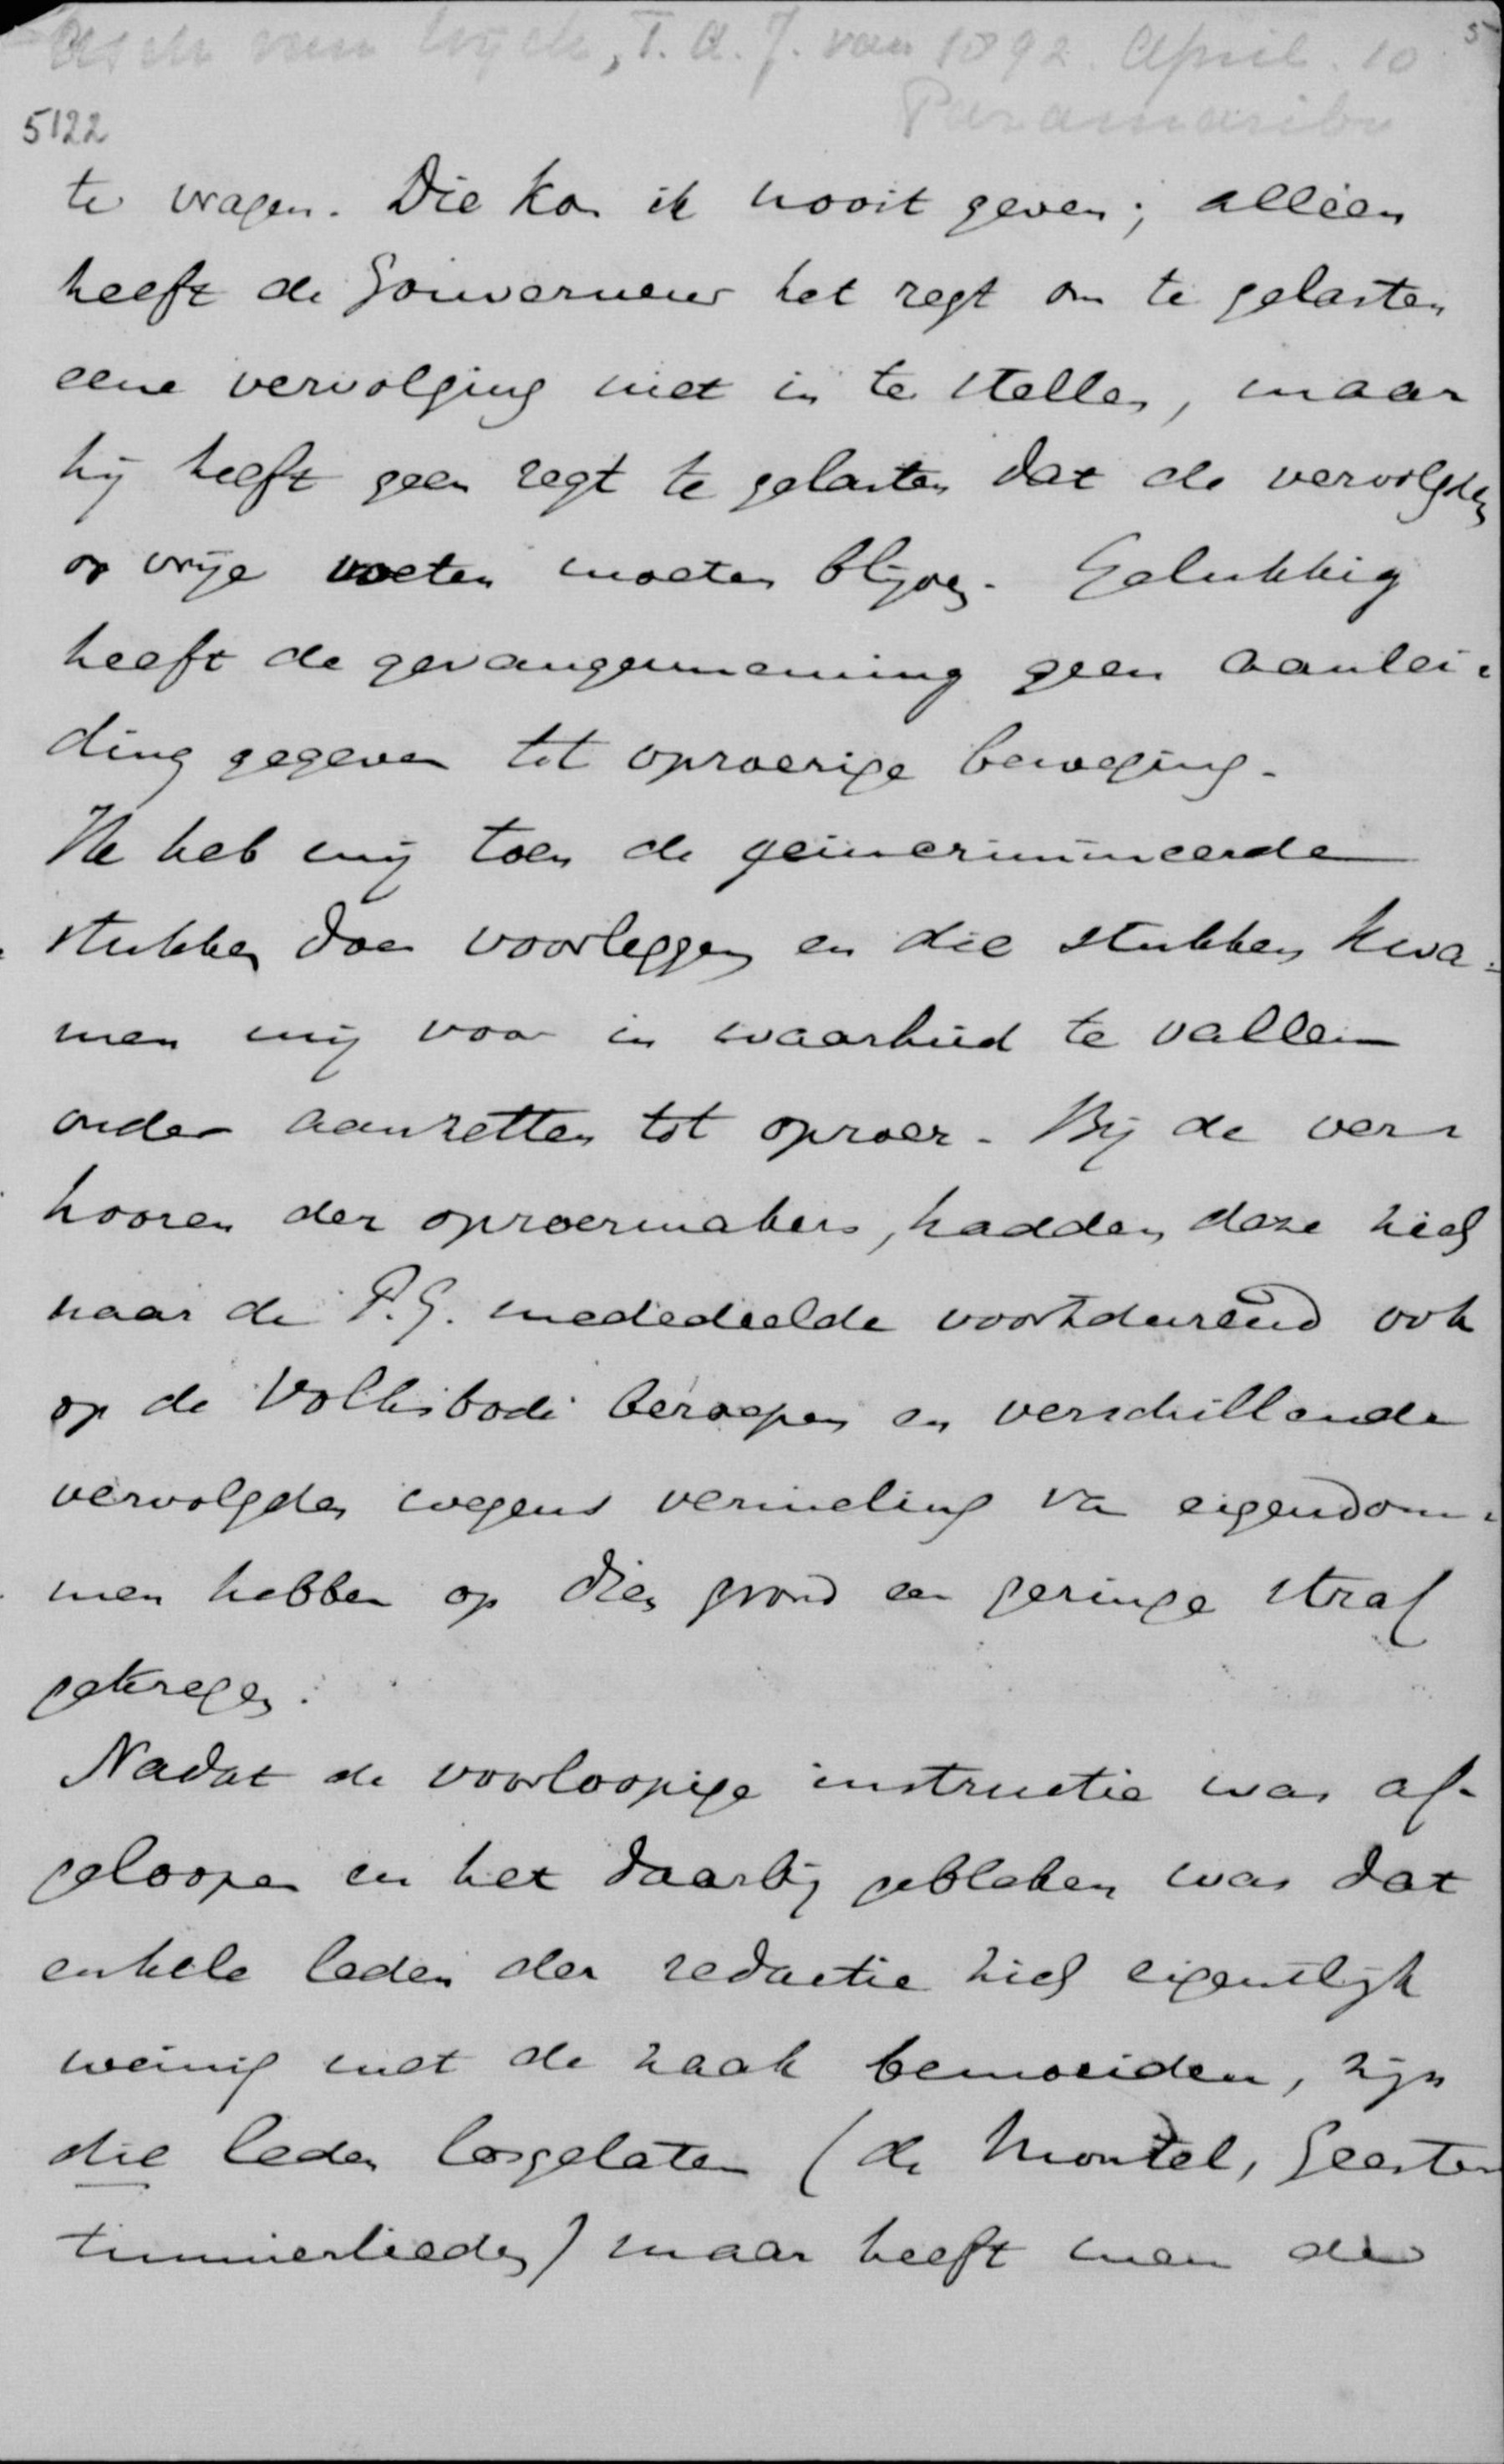 Asch van Wyck, T. A. J. van 1892. April. 10 5
Paramaribo
5122
te vragen. Die kon ik nooit geven; alléén
heeft de Gouverneur het regt om te gelasten
eene vervolging niet in te stellen, maar
hij heeft geen regt te gelasten dat de vervolgden
op vrije voeten moeten blijven. Gelukkig
heeft de gevangenneming geen aanlei-
ding gegeven tot oproerige beweging.
Ik heb mij toen de geincrimineerde
stukken doen voorleggen en die stukken kwa-
men mij voor in waarheid te vallen
onder aanzetten tot oproer. Bij de ver-
hooren der oproermakers, hadden deze zich
naar de P.G. mededeelde voortdurend ook
op de Volksbode beroepen en verschillende
vervolgden wegens vernieling van eigendom-
men hebben op dien grond een geringe straf
gekregen.
Nadat de voorloopige instructie was af-
geloopen en het daarbij gebleken was dat
enkele leden der redactie zich eigentlijk
weinig met de zaak bemoeiden, zijn
die leden losgelaten (de Montel, Geesten
timmerlieden) maar heeft men de